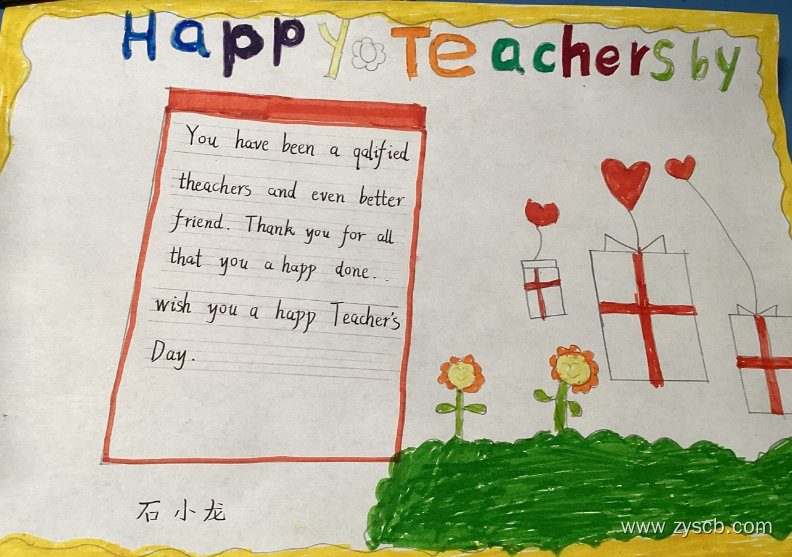 Happy Teachersby
You have been a qalified
theachers and even better
friend. Thank you for all
that you a happ done..
wish you a happ Teacher's
Day.
石小龙
www.zyscb.com